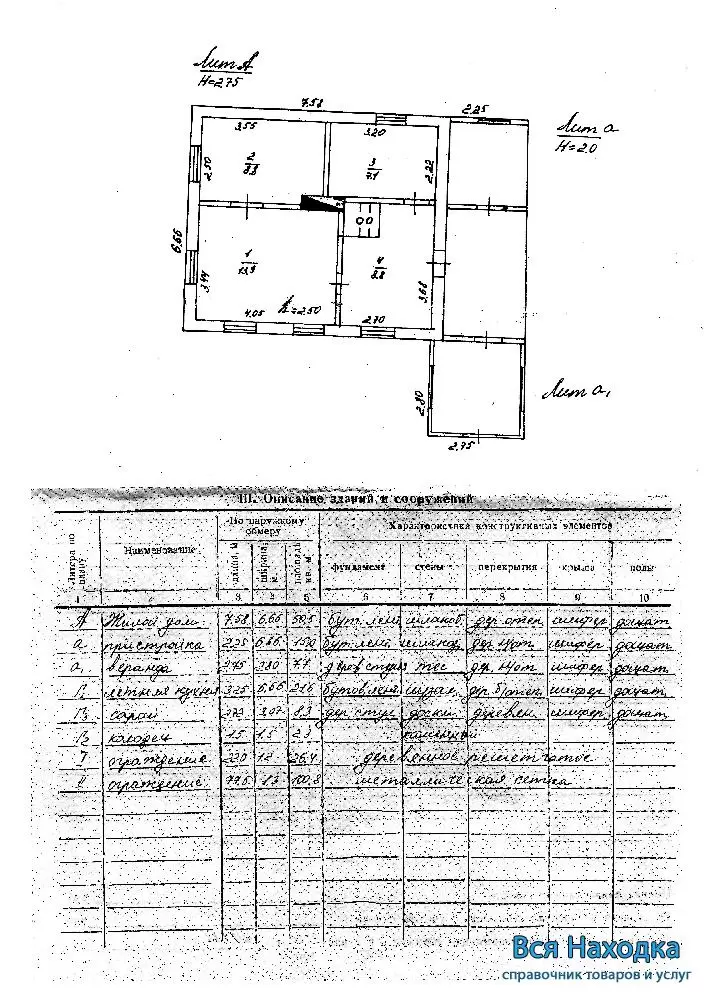 Лит А
H=2.75
7.58
2.25
Лит а
H=2.0
3.55
3.20
2
8.8
3
7.1
2.50
2.22
6.66
1
13.9
4
8.8
3.44
3.68
4.05
h=2.50
2.70
2.80
2.75
Лит а₁
III. Описание зданий и сооружений
Литера по плану
Наименование
По наружному обмеру
Характеристика конструктивных элементов
длина, м
ширина, м
площадь кв. м
фундамент
стены
перекрытия
крыша
полы
1 2 3 4 5 6 7 8 9 10
А Жилой дом 7.58 6.66 50,5 бут. лент шлакоб. дер. отеп. шифер дощат
а пристройка 2.25 6.66 15.0 бут. лент шлакоб. дер. н/от шифер дощат
а₁ веранда 2.75 2.80 7.7 дерев. стулья тес дер. н/от шифер дощат
летняя кухня 3.25 6.66 21.6 бутов. лент шифер дощат
сарай 8.3 дер. стул доски деревян. шифер дощат
колодец 1.5 1.5 2.3
ограждение 22.0 1.2 26,4 деревянное решетчатое
ограждение 1.3 100,8 металлическая сетка
Вся Находка
справочник товаров и услуг